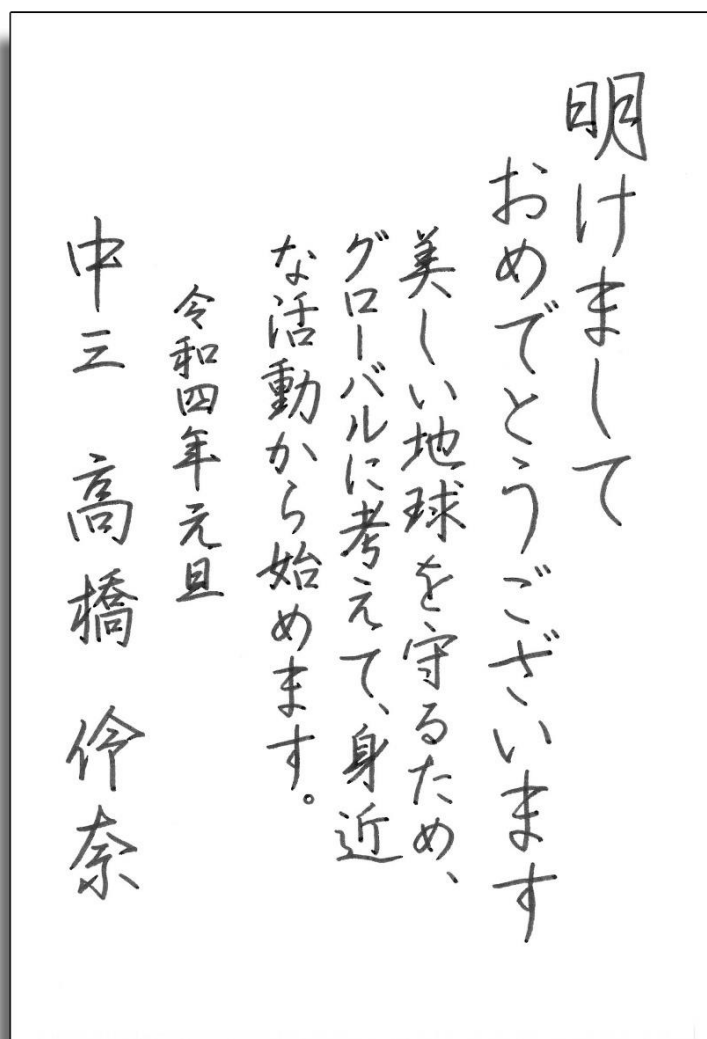 明けまして
おめでとうございます
美しい地球を守るため、
グローバルに考えて、身近
な活動から始めます。
令和四年元旦
中三 高橋 伶奈